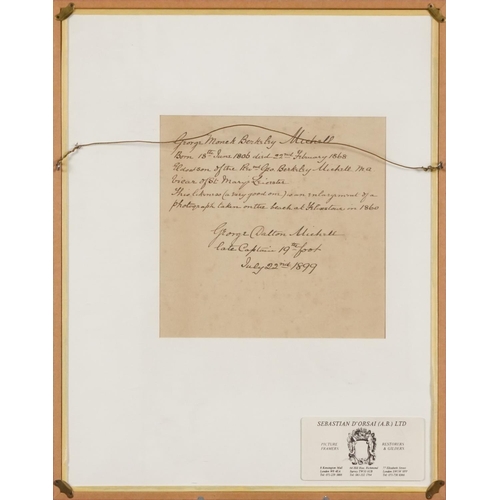 George Monck Berkeley Michell
Born 18th June 1806 died 22nd February 1868
Eldest son of the Revd Geo. Berkeley Michell M.A
Vicar of St Mary Leicester
This likeness (a very good one) is an enlargement of a
photograph taken on the beach at in 1860
George Dalton Michell
late Captain 19th foot
July 22nd 1899
SEBASTIAN D'ORSAI (A.B.) LTD
PICTURE FRAMERS
RESTORERS & GILDERS